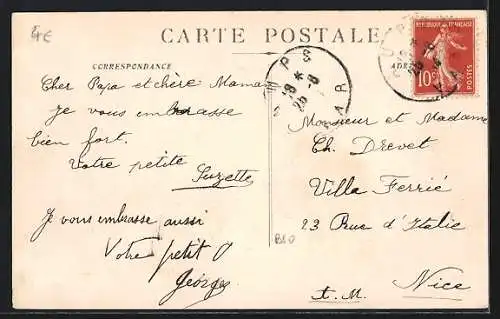 CARTE POSTALE
CORRESPONDANCE
Cher Papa et chère Maman
je vous embrasse
bien fort.
Votre petite
Suzette
Je vous embrasse aussi
Votre petit
Georges
RÉPUBLIQUE FRANÇAISE
10c
POSTES
Monsieur et Madame
Ch. Drevet
Villa Ferrié
23 Rue d'Italie
Nice
A.M.